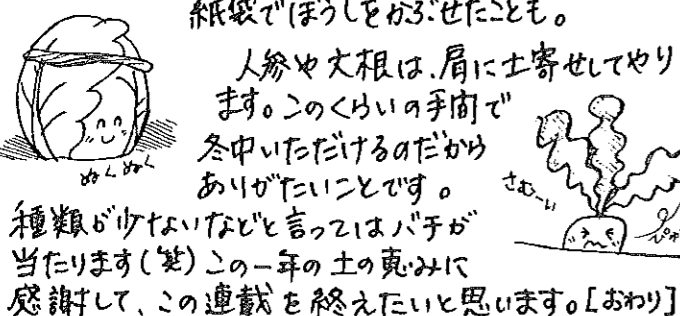 紙袋でぼうしをかぶせたことも。
人参や大根は、肩に土寄せしてやり
ます。このくらいの手間で
冬中いただけるのだから
ありがたいことです。
ぬくぬく
さむーい
種類が少ないなどと言ってはバチが
当たります(笑)この一年の土の恵みに
感謝して、この連載を終えたいと思います。[おわり]